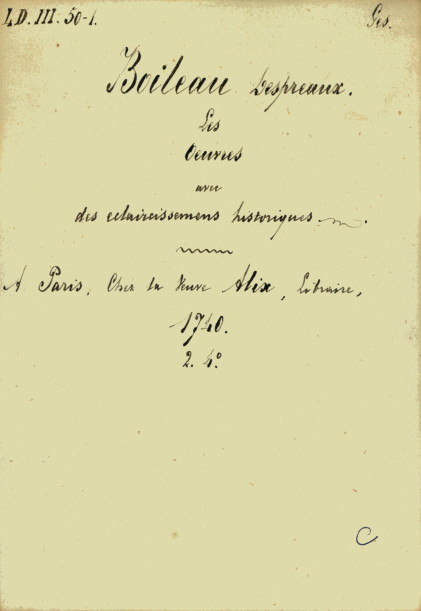 L.D. III. 50-1. Ges.
Boileau Despreaux.
Les
Oeuvres
avec
des eclaircissemens historiques.
A Paris, Chez la Veuve Alix, Libraire,
1740.
2. 4º.
C